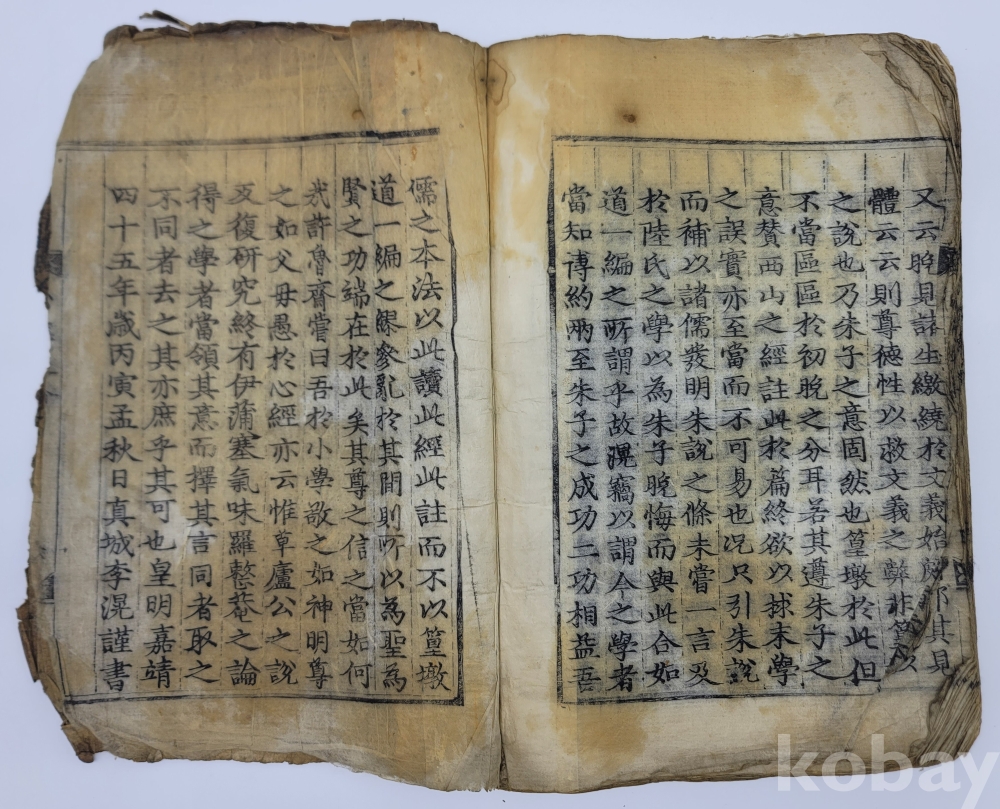 又云晚見諸生繳繞於文義始 其見
體云云則尊德性以救文義之弊非篁 以
之說也乃朱子之意固然也篁墩於此但
不當區區於初晚之分耳若其遵朱子之
意贊西山之經註此於篇終欲以捄末學
之誤實亦至當而不可易也況只引朱說
而補以諸儒發明朱說之條未嘗一言及
於陸氏之學以為朱子晚悔而與此合如
道一編之所謂乎故滉竊以謂今之學者
當知博約兩至朱子之成功二功相益吾
儒之本法以此讀此經此註而不以篁墩
道一編之繆參亂於其間則所以為聖為
賢之功端在於此矣其尊之信之當如何
㢤許魯齋嘗曰吾於小學敬之如神明尊
之如父母愚於心經亦云惟草廬公之說
反復研究終有伊蒲塞氣味羅整菴之論
得之學者當領其意而擇其言同者取之
不同者去之其亦庶乎其可也皇明嘉靖
四十五年歲丙寅孟秋日真城李滉謹書
kobay